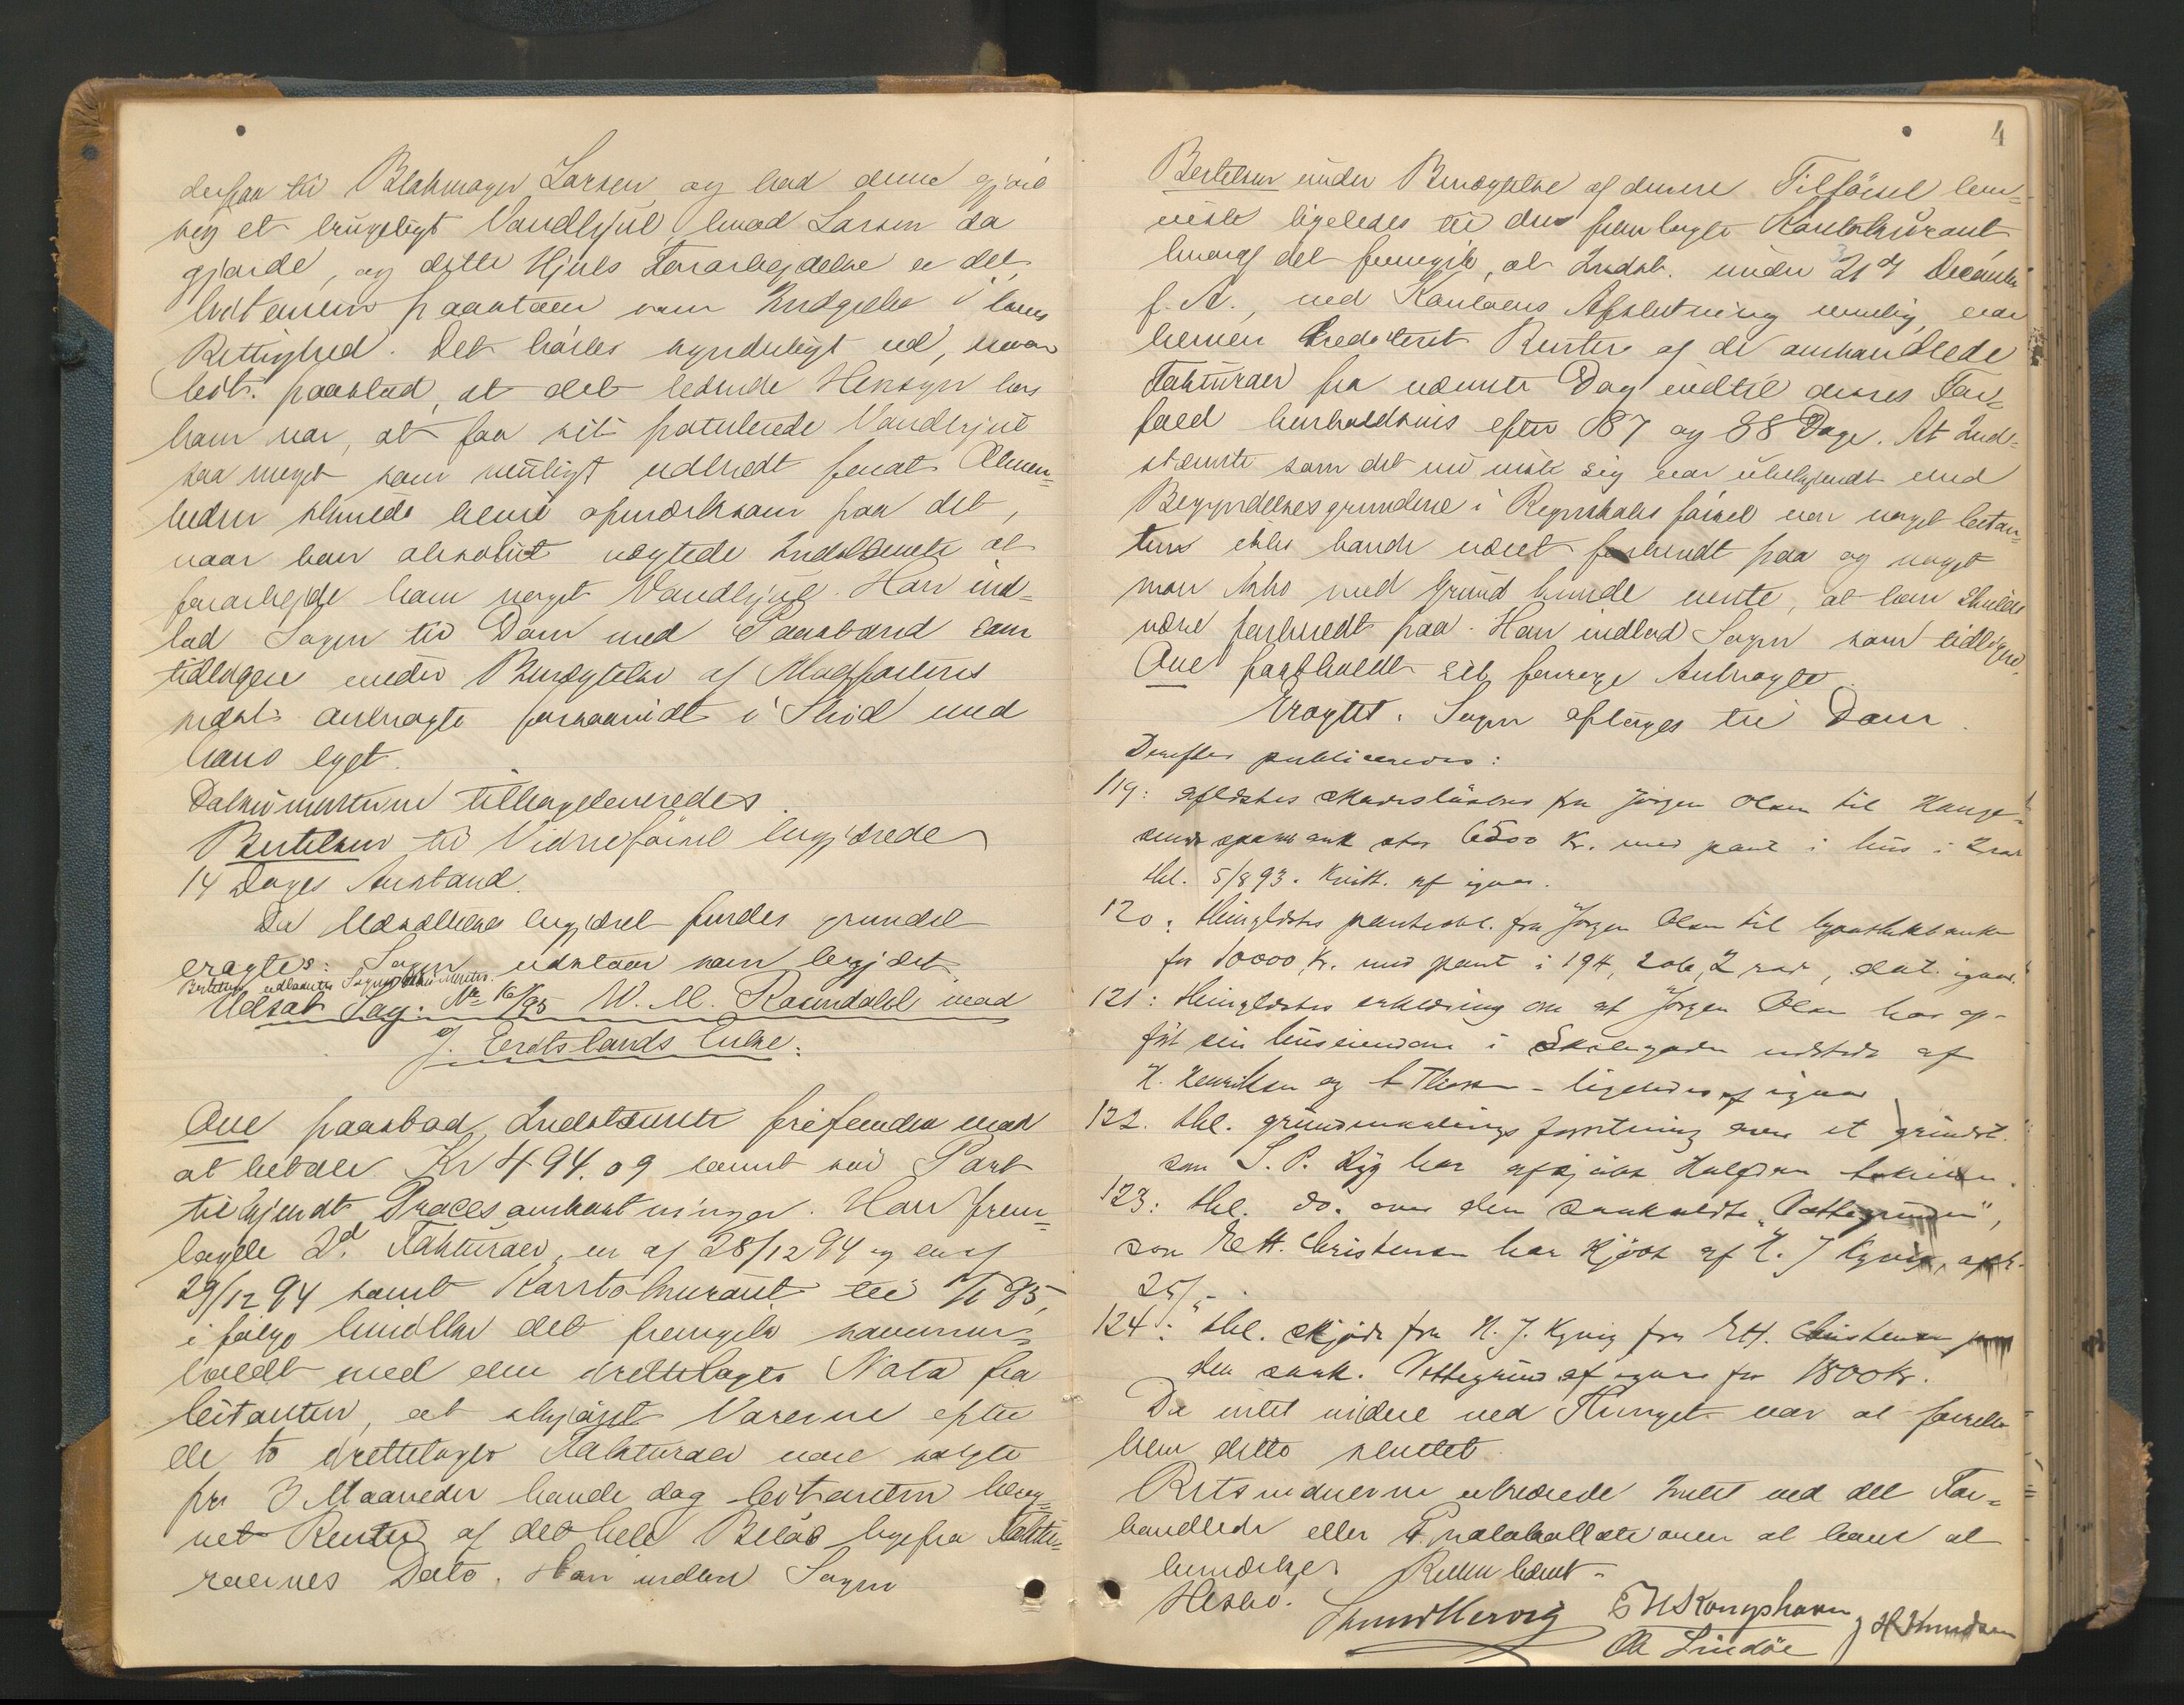 derpaa til Blikmager Larsen og bad denne gjøre
sig et brugeligt Vandhjul, hvad Larsen da
gjorde, og dette Hjuls Forarbejdelse er det
Citanten paastaar som Indgreb i hans
Rettighed. Det haves synderligt ud, naar
Cit. paastod, at det ledende Hensyn hos
ham var, at faa sit patenterede Vandhjul
saa meget som muligt udbredt forat Almen-
heden skulde blive opmærksom paa det,
naar han absolut nægtede Indstævnte at
forarbejde ham noget Vandhjul. Han ind-
lod Sagen til Dom med Paastand som
tidligere under Benægtelse af Modpartens
sidst anbragte forsaavidt i Strid med
hans eget.
Dokumenterne tilbageleveredes.
Bertelsen til Vidneførsel begjærede
14 Dages Anstand.
Da Udsættelses begjæret fandtes grundet
eragtes: Sagen udstaar som begjæret.
Bertelsen udlaantes Sagens Dokumenter.
Udsat Sag: No 16/95 W. M. Rosendahl mod
J. Erdtslands Enke:
Aue paastod Indstævnte frifunden mod
at betale Kr 494.09 samt sin Part
tilkjendt Procesomkostninger. Han frem-
lagde 2de Fakturaer, en af 28/12 94 og en af
29/12 94 samt Kontokurant til 95,
i følge hvilke det fremgik sammen-
holdt med den irettelagte Nota fra
Citanten, at skjønt Varerne efter
de to irettelagte Fakturaer vare solgte
pr 3 Maaneder havde dog Citanten bereg-
net Renter af det hele Beløb ligefra Faktu-
raernes Dato. Han indlod Sagen
4
Bertelsen under Benægtelse af denne Tilførsel hen-
viste ligeledes til den fremlagte Kontokurant
hvoraf det fremgik, at Indst. under 31te Decembr
f. A., ved Kontoens Afslutning nemlig, var
bleven krediteret Renter af de omhandlede
Fakturaer fra nævnte Dag indtil deres For-
fald henholdsvis efter 87 og 88 Dage. At Ind-
stævnte som det nu viste sig var ubekjendt med
Begyndelsesgrundene i Regnskabsførsel var noget Citan-
ten ikke havde været forberedt paa og noget
man ikke med Grund kunde vente, at han skulde
være forberedt paa. Han indlod Sagen som tidligere.
Aue fastholdt sit forrige Anbragte.
Eragtet: Sagen optages til Dom.
Derefter publiceredes:
119: aflæstes skadesløsbrev fra Jørgen Olsen til Hauge-
sunds sparebank stor 6500 Kr. med pant i hus i
thl. 5/8 93. Kvitt. af igaar.
120: thinglæstes panteobl. fra Jørgen Olsen til hypothekbanken
for 10000 Kr. med pant i 194, 206, 2 rad, dat. igaar.
121: thinglæstes erklæring om at Jørgen Olsen har op-
ført sin huseiendom i Skolegaden udstedt af
H. Henriksen og – ligeledes af igaar
122. thl. grundmaalings forretning over et grundst.
som S. P. har afkjøbt Halfdan
123: thl. do. over den saakaldte "Vattegrunden",
som E. H. Christensen har kjøbt af N. J. Kyvig,
25/
124: thl. skjøde fra N. J. Kyvig for E. H. Christensen paa
den saak. Vattegrund af igaar for 1800 Kr.
Da intet videre ved Thinget var at foretage
blev dette sluttet.
Retsvidnerne erklærede Intet ved det For-
handlede eller Protokollationen at have at
bemærke. Retten hævet –
Hesbø.
E H Kongshavn
H Knudsen
Ole Lindøe